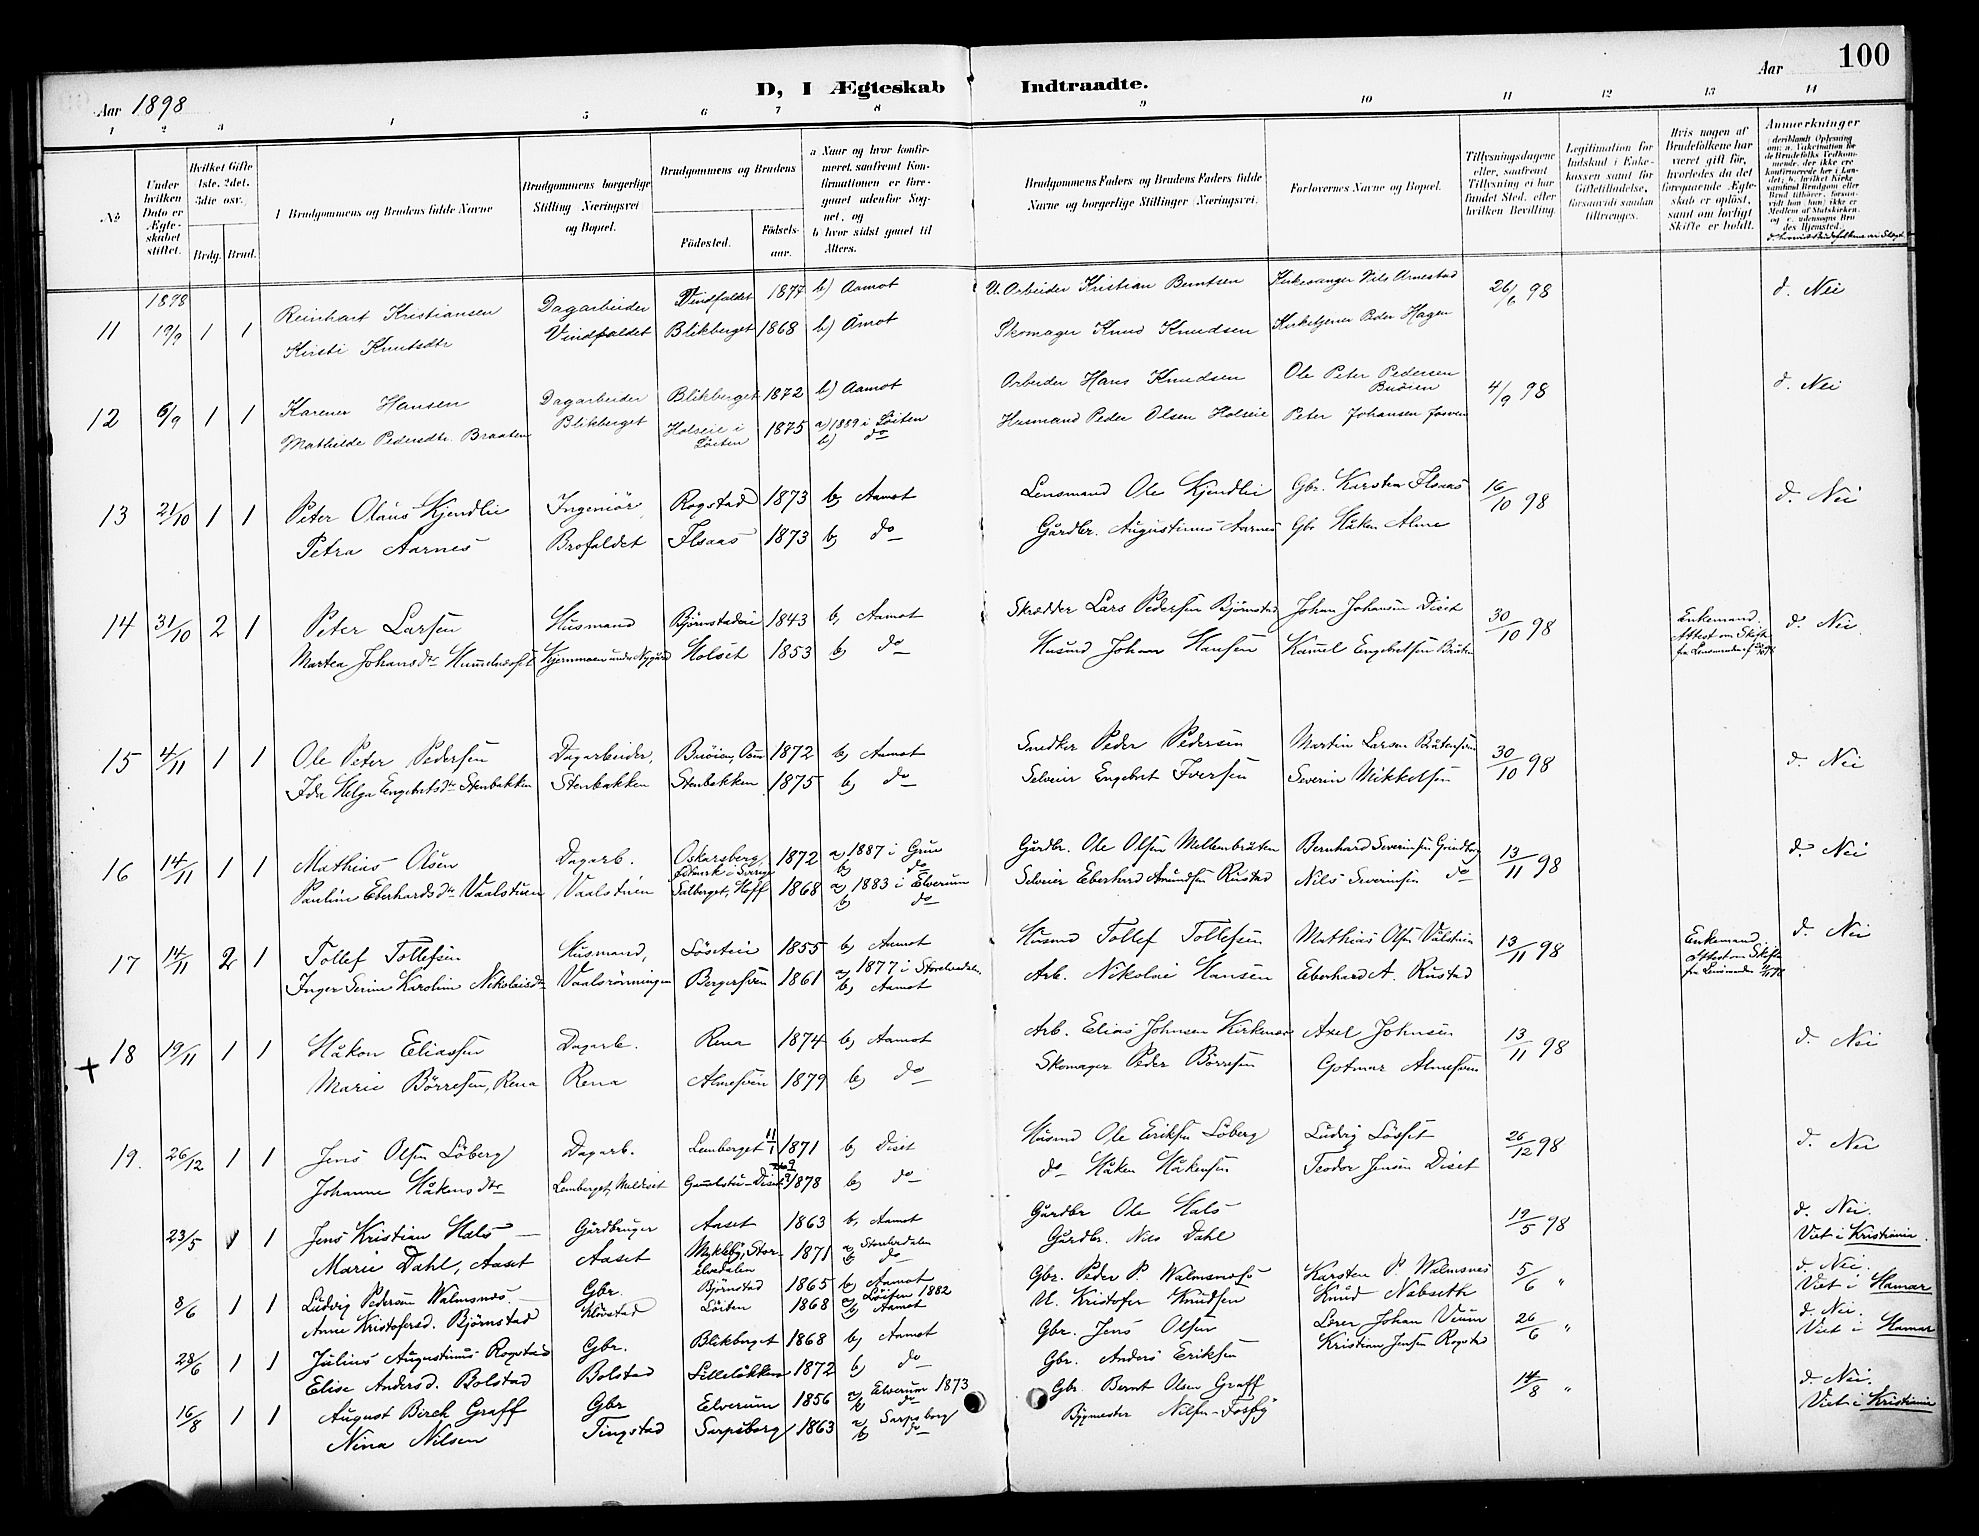 100
D, I Ægteskab Indtraadte.
Aar 1898
Aar
1 2 3 4 5 6 7 8 9 10 11 12 13 14
№
Under hvilken Dato er Ægteskabet stiftet.
Hvilket Gifte 1ste. 2det. 3die osv.
Brdg. Brud.
Brudgommens og Brudens fulde Navne
Brudgommens borgerlige Stilling Næringsvei og Bopæl.
Brudgommens og Brudens
Fødested.
Fødselsaar.
a Naar og hvor konfirmeret, saafremt Konfirmationen er foregaaet udenfor Sognet, og
b hvor sidst gaaet til Alters.
Brudgommens Faders og Brudens Faders fulde Navne og borgerlige Stillinger (Næringsvei.
Forlovernes Navne og Bopæl.
Tillysningsdagene eller, saafremt Tillysning ei har fundet Sted, efter hvilken Bevilling.
Legitimation for Indskud i Enkekassen samt for Giftetilladelse, forsaavidt saadan tiltrænges.
Hvis nogen af Brudefolkene har været gift før, hvorledes da det foregaaende Ægteskab er opløst, samt om lovligt Skifte er holdt.
Anmerkninger
1898
11 19/9 1 1 Reinhart Kristiansen Dagarbeider Vindfaldet 1877 b) Aamot U. Arbeider Kristian Berntsen Kirkesanger Nils Arnestad 26/6 98 d. Nei
Kirsti Knutsdtr Vindfaldet Blikberget 1868 b) Åmot Skomager Knud Knudsen Kirketjener Peder Hagen
12 6/9 1 1 Karener Hansen Dagarbeider Blikberget 1872 b) Aamot Arbeider Hans Knudsen Ole Peter Pedersen Buöien 4/9 98 d. Nei
Mathilde Pedersdtr. Braaten Blikberget Holseie i Löiten 1875 a) 1889 i Löiten b) do Husmand Peder Olsen Holseie Peter Johansen
13 21/10 1 1 Peter Olaus Kjendlie Ingeniör Rogstad 1873 b) Aamot Lensmand Ole Kjendlie Gbr. Karsten Ilsaas 16/10 98 d. Nei
Petra Aarnes Brofaldet Ilsaas 1873 b) do Gårdbr. Augustinus Aarnes Gbr Håken Alme
14 31/10 2 1 Peter Larsen Husmand Björnstadeie 1843 b, Aamot Skrædder Lars Pedersen Björnstad Johan Johansen Diset 30/10 98 Enkemand. Attest om Skifte fra Lensmanden d. Nei.
Martea Johansdtr Kjernmoen under Nygård Holset 1853 b) do Husmd Johan Hansen Kamel Engebretsen Bråten
15 4/11 1 1 Ole Peter Pedersen Dagarbeider, Buöien, 1872 b) Aamot Snedker Peder Pedersen Martin Larsen 30/10 98 d. Nei
Ida Helga Engebretsdtr Stenbakken Stenbakken Stenbakken 1875 b) do Selveier Engebret Iversen Severin Mikkelsen
16 14/11 1 1 Mathias Olsen Dagarb. Oskarsberg, 1872 a) 1887 i Grue b) do Gårdbr. Ole Olsen Mellembråten Bernhard Severinsen Grindberg 13/11 98 d. Nei
Pauline Eberhardsdtr Vaalstuen Vaalstuen Salberget, Hoff 1868 a) 1883 i Elverum b) do Selveier Eberhard Amundsen Rustad Nils Severinsen do
17 14/11 2 1 Tollef Tollefsen Husmand, Löseteie 1855 b) Aamot Husmd Tollef Tollefsen Mathias Olsen Vålstuen 13/11 98 Enkemand Attest om Skifte fra Lensmanden d. Nei
Inger Serine Karoline Nikolaisdtr Vaalsrönningen Bergersveen 1861 a) 1877 i Storelvedalen b) Aamot Arb. Nikolai Hansen Eberhard A. Rustad
+ 18 19/11 1 1 Håkon Eliassen Dagarb. Rena 1874 b) Aamot Arb. Elias Johnsen Kirkemo Axel Johnsen 13/11 98 d. Nei
Marie Börresen, Rena Rena Almesveen 1879 b) do Skomager Peder Börresen Gotmar Almesveen
19. 26/12 1 1 Jens Olsen Löberg Dagarb. Lemberget 11/1 1871 b) Diset Husmd Ole Eriksen Löberg Ludvig Lösset 26/12 98 d. Nei
Johanne Håkensdtr Lemberget, Meldiset Gammelstu-Diset 1878 b) do do Håken Håkensen Teodor Jensen Diset
23/5 1 1 Jens Kristian Hals Gårdbruger Aaset 1863 b, Aamot Gårdbr Ole Hals 19/5 98 d. Nei.
Marie Dahl, Aaset Aaset Mykleby, Storelvedalen 1871 a) Storelvedalen b) do Gårdbr. Nils Dahl Viet i Kristiania.
8/6 1 1 Ludvig Pedersen Walmsnæs Gbr. Björnstad 1865 b) Aamot Gbr. Peder P. Walmsnæs Karsten P. Walmsnes 5/6 " d. Nei.
Anne Kristofersd. Björnstad Klövstad Löiten 1868 a) Löiten 1882 b) Aamot U. Kristofer Knudsen Knud Nabseth Viet i Hamar
28/6 1 1 Julius Augustinus Rogstad Gbr. Blikberget 1868 b) Aamot Gbr. Jens Olsen Lærer Johan Veum 26/6 " d. Nei.
Elise Andersd. Bolstad Bolstad Lillelökken 1872 b) do Gbr. Anders Eriksen Kristian Jensen Rogstad Viet i Hamar
16/8 1 1 August Birch Graff Gbr Elverum 1856 a) Elverum 1873 b) do Gbr. Bernt Olsen Graff 14/8 " d. Nei.
Nina Nilsen Tingstad Sarpsborg 1863 a) Sarpsborg b) do Bygmester Nilsen-Fosby Viet i Kristiania